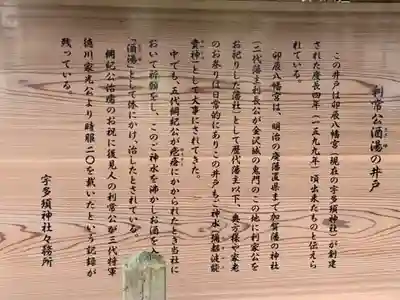 利常公酒湯の井戸
この井戸は卯辰八幡宮（現在の宇多須神社）が創建
された慶長四年（一五九九年）頃出来たものと伝えら
れている。
卯辰八幡宮は、明治の廃藩置県まで加賀藩の神社
（二代藩主利長公が金沢城の鬼門のこの地に利家公を
お祀りした藩社）として歴代藩主以下、奥方様や家老
のお参りは日常的にありこの井戸もご神水（彌都波能
賣神）として大事にされてきた。
中でも、五代綱紀公が疱瘡にかかられたとき当社に
おいて祈願をし、このご神水を沸かしお酒を入
「酒湯」として体にかけ、治したとされている。
綱紀公治癒のお祝に後見人の利常公が三代将軍
徳川家光公より時服二〇を戴いたという記録が
残っている。
宇多須神社々務所